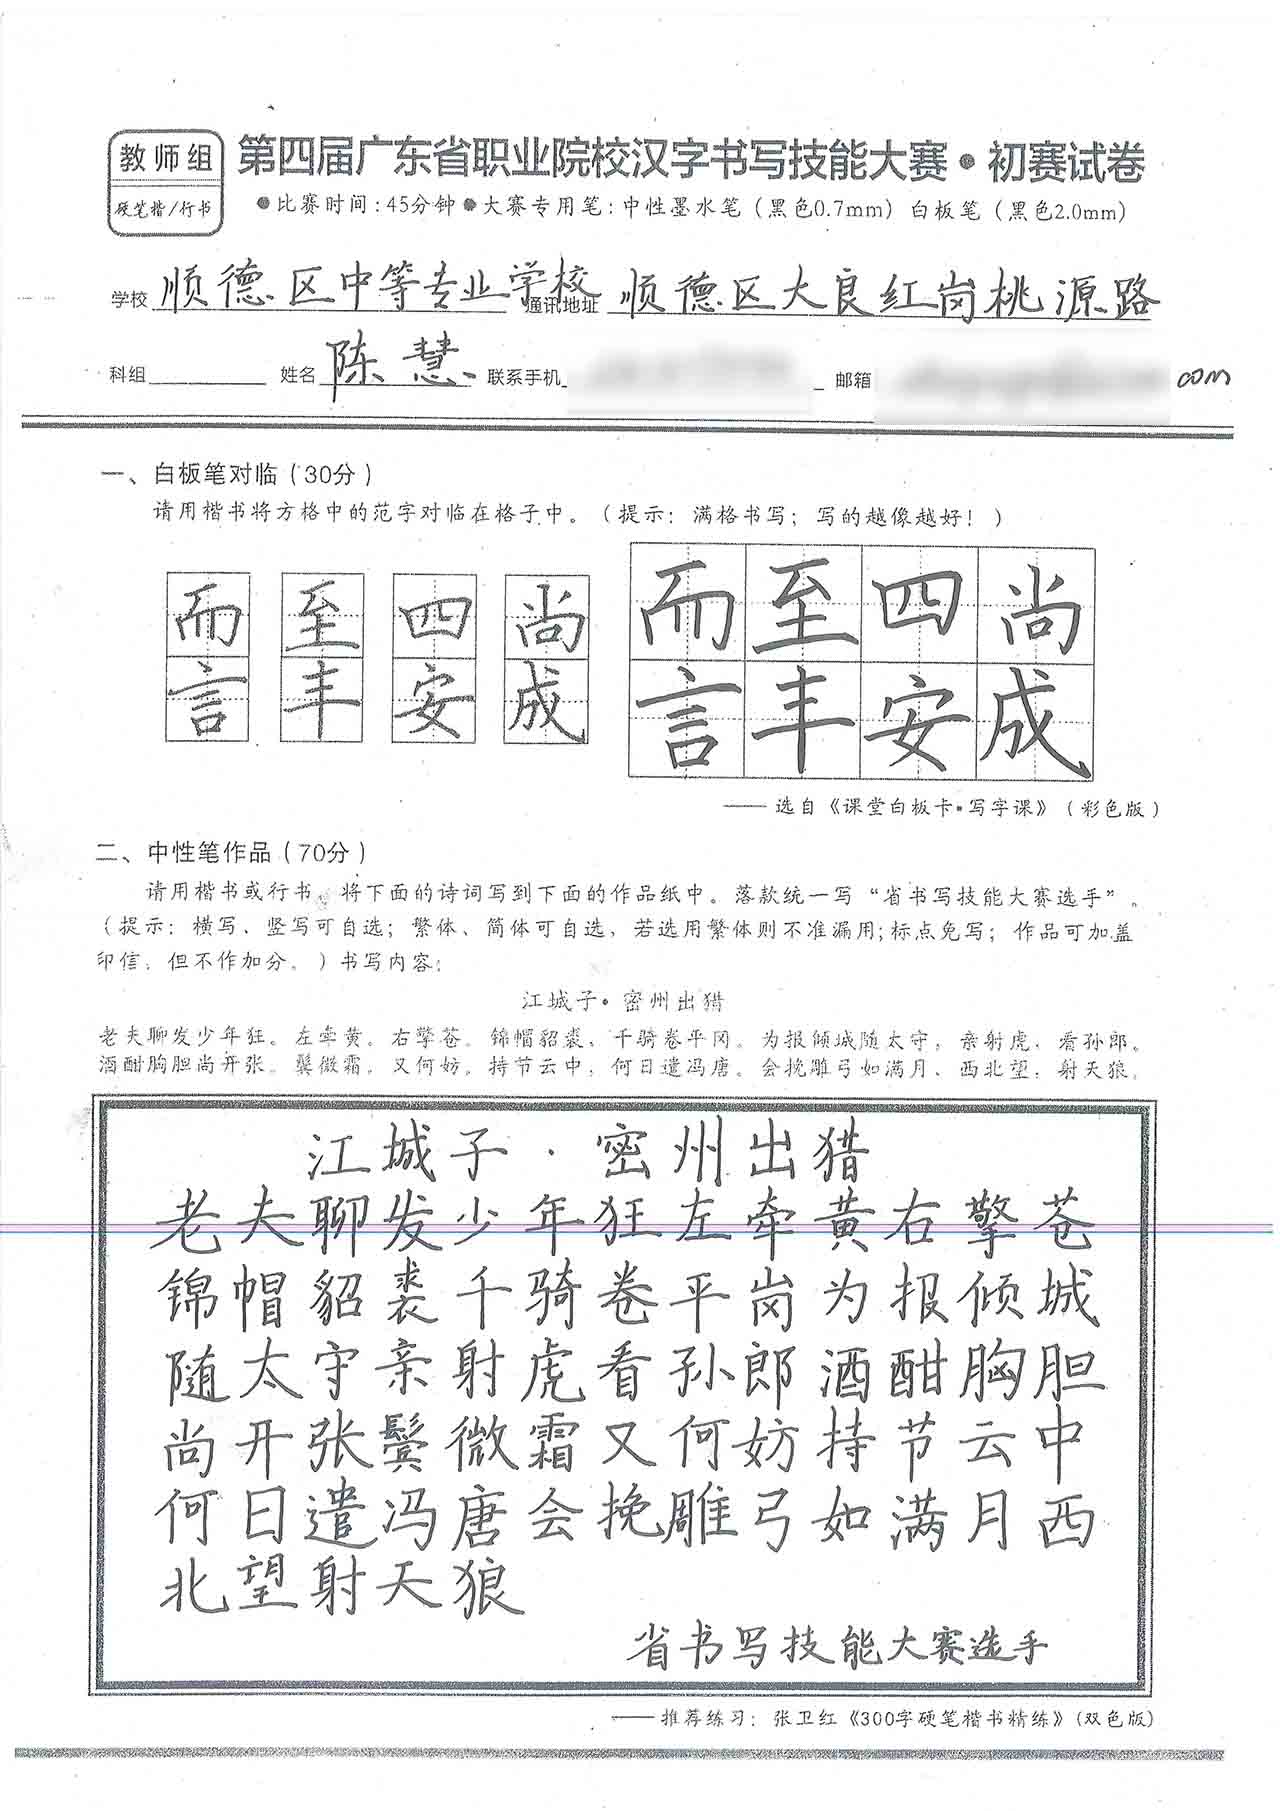 教师组
硬笔楷/行书
第四届广东省职业院校汉字书写技能大赛·初赛试卷
●比赛时间:45分钟●大赛专用笔:中性墨水笔(黑色0.7mm)白板笔(黑色2.0mm)
学校 顺德区中等专业学校 通讯地址 顺德区大良红岗桃源路
科组 姓名 陈慧 联系手机 邮箱 com
一、白板笔对临(30分)
请用楷书将方格中的范字对临在格子中。(提示:满格书写;写的越像越好!)
而 至 四 尚 而 至 四 尚
言 丰 安 成 言 丰 安 成
——选自《课堂白板卡·写字课》(彩色版)
二、中性笔作品(70分)
请用楷书或行书,将下面的诗词写到下面的作品纸中。落款统一写“省书写技能大赛选手”。
(提示:横写、竖写可自选;繁体、简体可自选,若选用繁体则不准漏用;标点免写;作品可加盖
印信,但不作加分。)书写内容:
江城子·密州出猎
老夫聊发少年狂。左牵黄。右擎苍。锦帽貂裘、千骑卷平冈。为报倾城随太守,亲射虎、看孙郎。
酒酣胸胆尚开张。鬓微霜。又何妨。持节云中,何日遣冯唐。会挽雕弓如满月、西北望,射天狼。
江城子·密州出猎
老夫聊发少年狂左牵黄右擎苍
锦帽貂裘千骑卷平岗为报倾城
随太守亲射虎看孙郎酒酣胸胆
尚开张鬓微霜又何妨持节云中
何日遣冯唐会挽雕弓如满月西
北望射天狼
省书写技能大赛选手
——推荐练习:张卫红《300字硬笔楷书精练》(双色版)